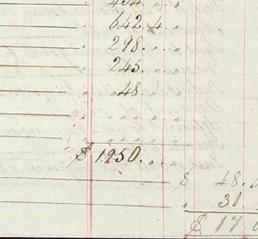 642.4.
298. . .
245. . .
48. . .
$1250. . .
$ 48.
31.
$ 17.